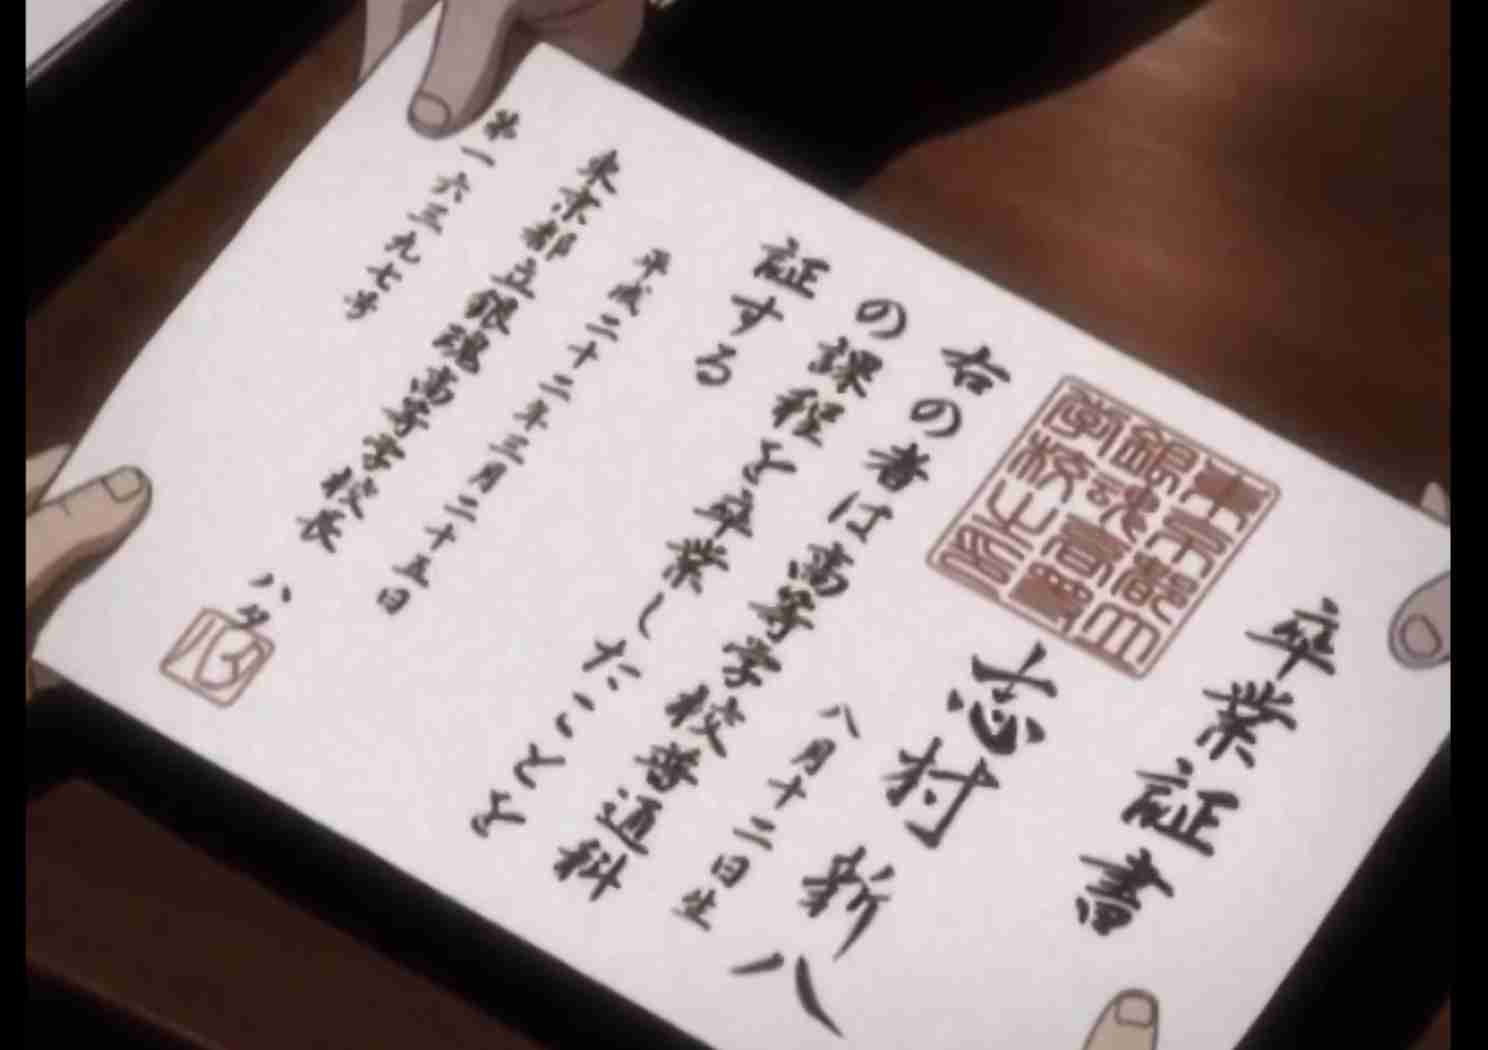 卒業証書
志村 新八
八月十二日生
右の者は高等学校普通科
の課程を卒業したことを
証する
平成二十二年三月二十五日
東京都立銀魂高等学校長 ハタ
第一六三九七号
東京都立
銀魂高等
学校之印
ハタ